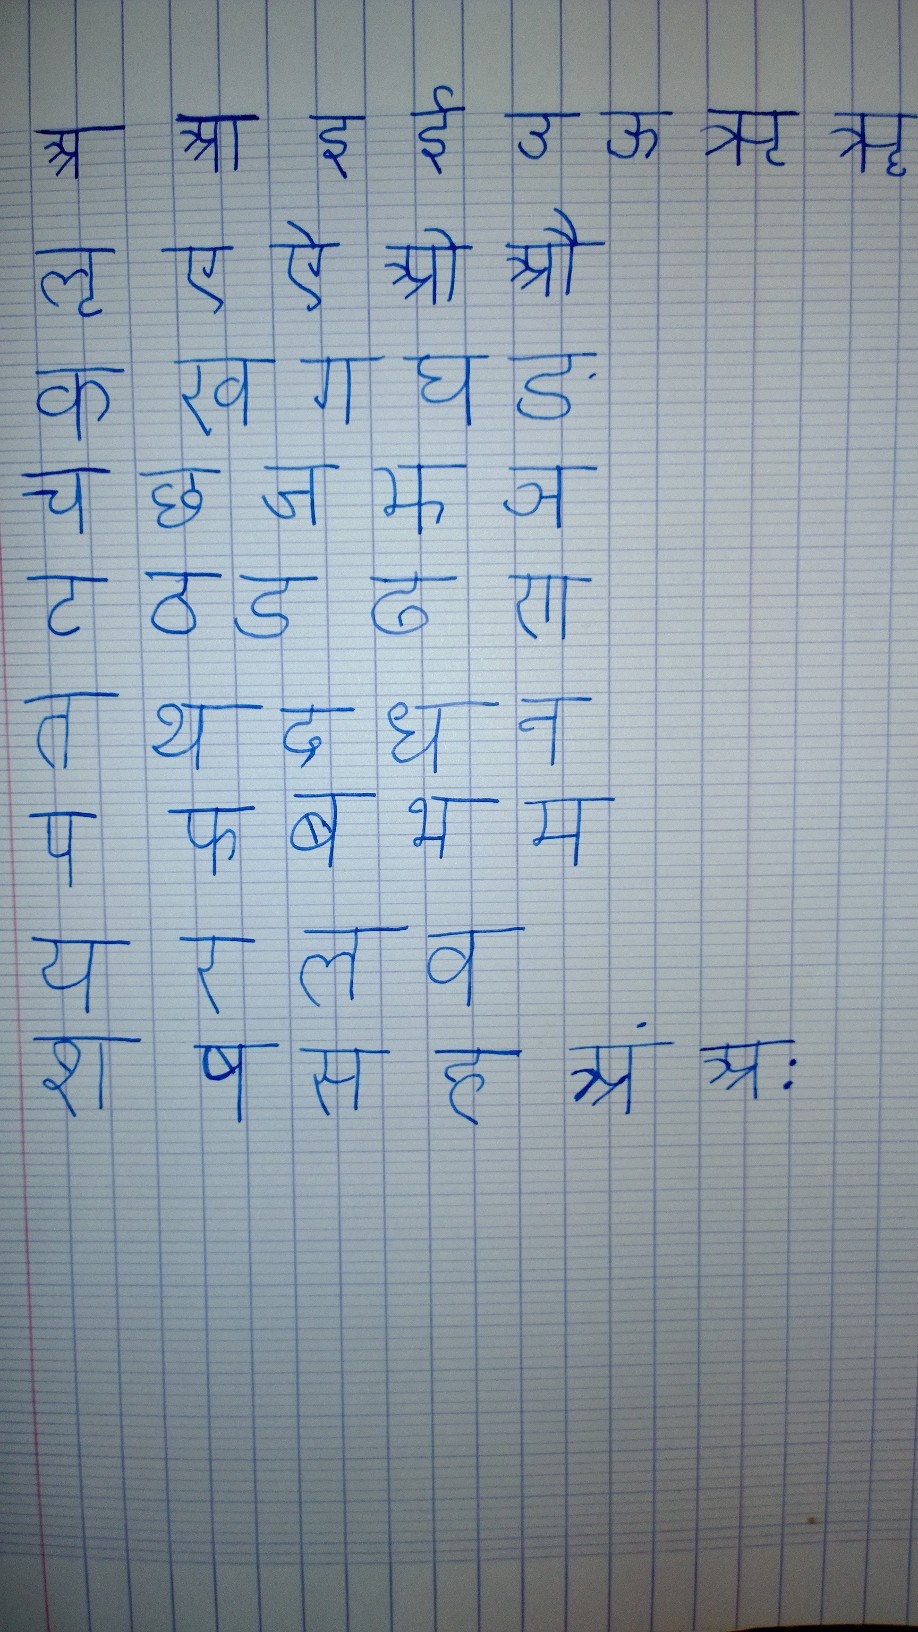 अ आ इ ई उ ऊ ऋ ॠ
ऌ ए ऐ ओ औ
क ख ग घ ङ
च छ ज झ ञ
ट ठ ड ढ ण
त थ द ध न
प फ ब भ म
य र ल व
श ष स ह अं अः